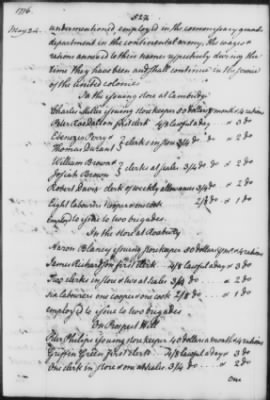 1776. 527
May 24. undermentioned, employed in the commissary general's
department in the continental army, the wages &
rations annexed to their names respectively during the
time they have been and shall continue in the service
of the united colonies
In the issuing store at Cambridge
Charles Miller issuing store keeper 50 dollars month & 4 rations
first clerk 4/8 lawful a day & 3 do
Ebenezer Perry &
Thomas } clerks in store 3/4 do & 2 do
William Brown &
Josiah Brown } clerks at scales 3/4 do & 2 do
Robert Davis clerk of weekly allowance 3/4 do & 2 do
Eight labourers & cooper & one cook 2/8 do & 1 do
employed to issue to two brigades.
In the store at Roxbury
Aaron Blaney issuing storekeeper 50 dollars month & 4 rations
James Richardson first clerk 4/8 lawful a day & 3 do
Two clerks in store & two at scales 3/4 do & 2 do
Six labourers one cooper & one cook 2/8 do & 1 do
employed to issue to two brigades
On Prospect Hill
Philips issuing store keeper 40 dollars a month & 4 rations
Griffin Green first clerk 4/8 lawful a day & 3 do
One clerk in store & one at scales 3/4 do & 2 do
One